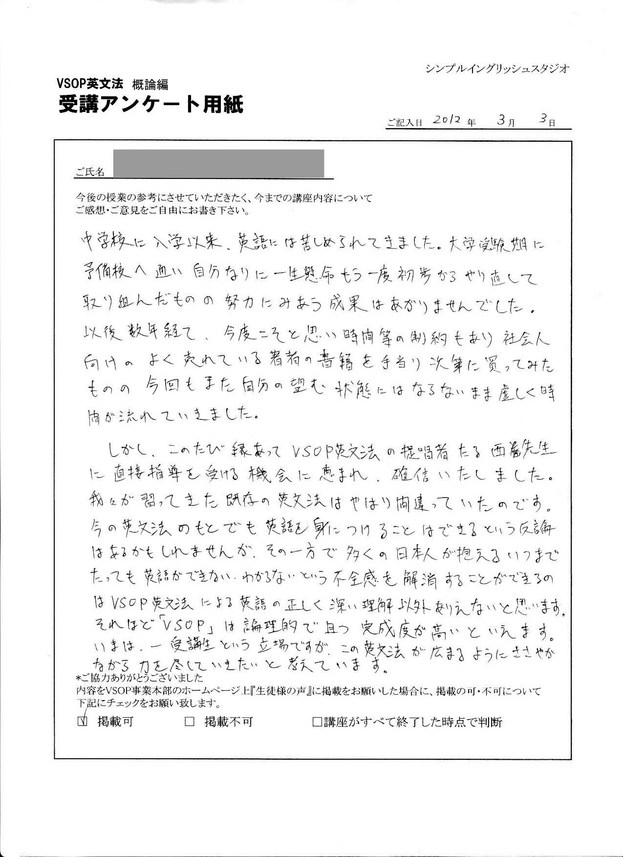 シンプルイングリッシュスタジオ
VSOP英文法 概論編
受講アンケート用紙
ご記入日 2012 年 3 月 3 日
ご氏名
今後の授業の参考にさせていただきたく、今までの講座内容について
ご感想・ご意見をご自由にお書き下さい。
中学校に入学以来、英語には苦しめられてきました。大学受験期に
予備校へ通い自分なりに一生懸命もう一度初歩からやり直して
取り組んだものの努力にみあう成果はあがりませんでした。
以後数年経て、今度こそと思い時間等の制約もあり社会人
向けのよく売れている著者の書籍を手当り次第に買ってみた
ものの今回もまた自分の望む状態にはならないまま虚しく時
間が流れていきました。
しかし、このたび縁あってVSOP英文法の提唱者たる西巻先生
に直接指導を受ける機会に恵まれ、確信いたしました。
我々が習ってきた既存の英文法はやはり間違っていたのです。
今の英文法のもとでも英語を身につけることはできるという反論
はあるかもしれませんが、その一方で多くの日本人が抱えるいつまで
たっても英語ができない、わからないという不全感を解消することができるの
はVSOP英文法による英語の正しく深い理解以外ありえないと思います。
それほど「VSOP」は論理的で且つ完成度が高いといえます。
いまは、一受講生という立場ですが、この英文法が広まるようにささやか
ながら力を尽していきたいと考えています。
*ご協力ありがとうございました
内容をVSOP事業本部のホームページ上『生徒様の声』に掲載をお願いした場合に、掲載の可・不可について
下記にチェックをお願い致します。
☑ 掲載可 □ 掲載不可 □講座がすべて終了した時点で判断